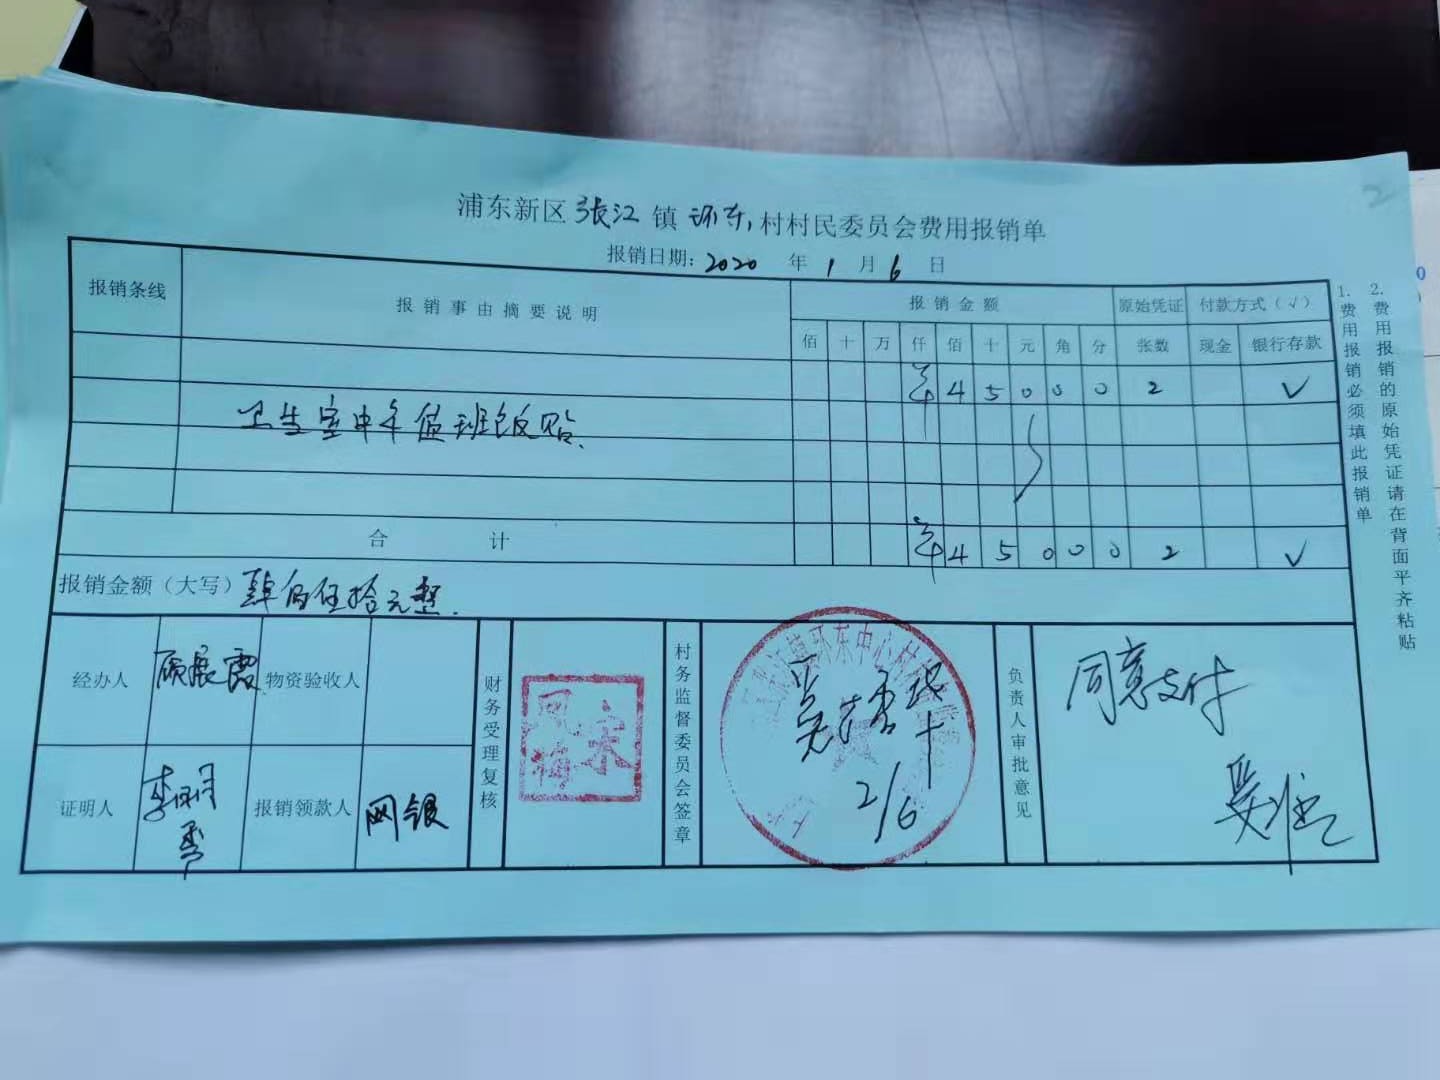 2
浦东新区张江镇环东村村民委员会费用报销单
报销日期：2020年1月6日
报销条线 报销事由摘要说明 报销金额 原始凭证 付款方式（√）
佰 十 万 仟 佰 十 元 角 分 张数 现金 银行存款
卫生室中午值班饭贴
¥ 4 5 0 0 0 2 √
合计 ¥ 4 5 0 0 0 2 √
报销金额（大写）肆佰伍拾元整
经办人 顾展霞 物资验收人
证明人 李 报销领款人 网银
财务受理复核
村务监督委员会签章
2/6
负责人审批意见
同意支付
1.费用报销必须填此报销单
2.费用报销的原始凭证请在背面平齐粘贴